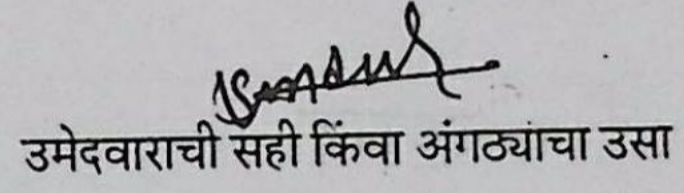 उमेदवाराची सही किंवा अंगठ्यांचा उसा